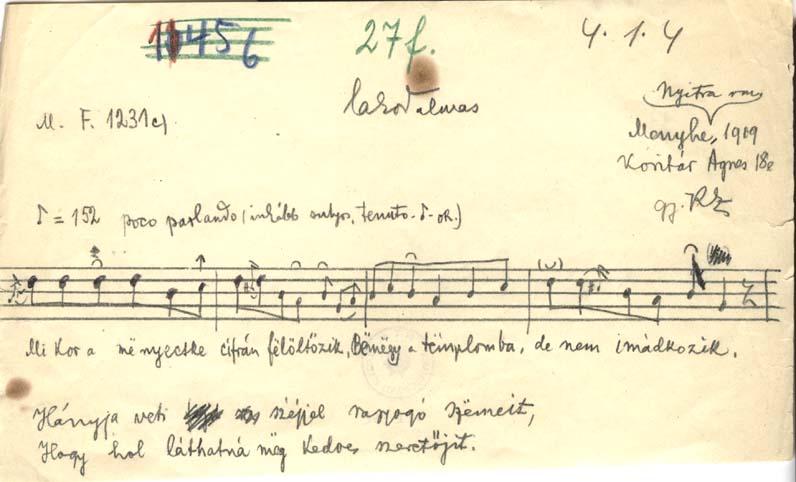 10456 27f. 4.1.4
lakodalmas
M. F. 1231c)
Nyitra vm
Menyhe, 1909
Koritár Ágnes 18é
gy. KZ
♪ = 152 poco parlando (inkább súlyos, tenuto-♪-ok.)
Mikor a mënyecske cifrán fëlöltözik, Bëmëgy a tëmplomba, de nem imádkozik.
Hányja veti széjjel ragyogó szëmeit,
Hogy hol láthatná mëg kedves szeretőjit.